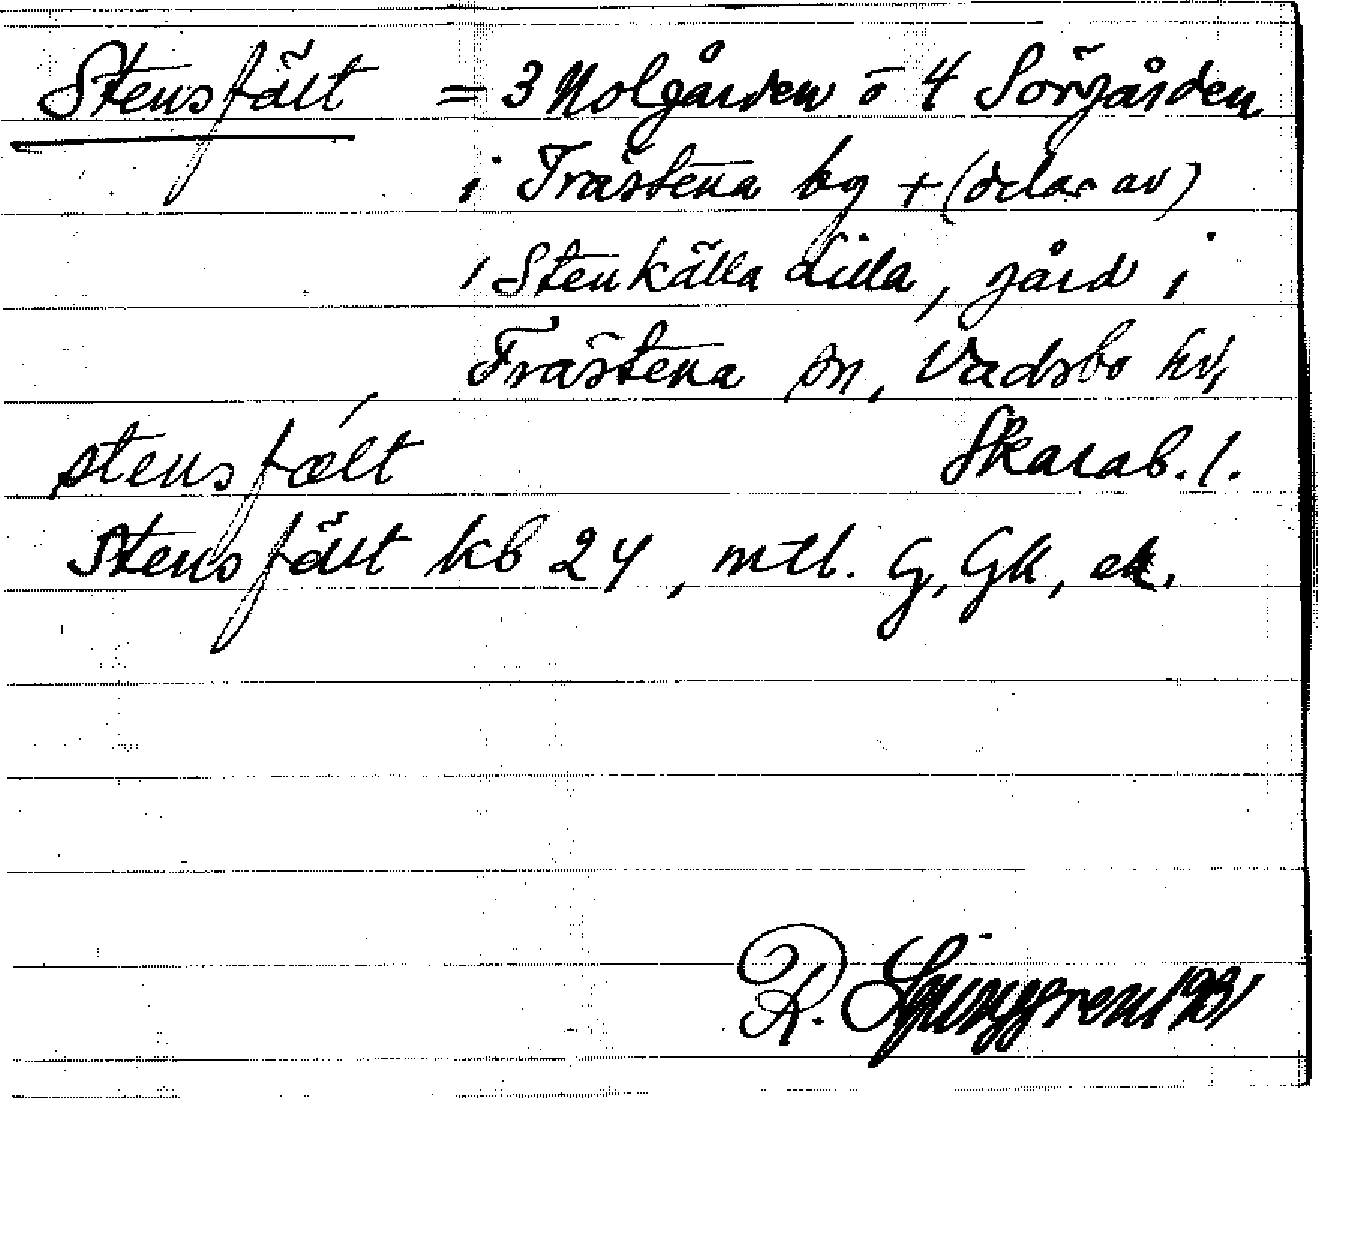 Stensfält = 3 Nolgården o 4 Sörgården
i Trästena by + (delar av)
1 Stenkälla Lilla, gård i
Trästena sn, Vadsbo hd,
Skarab. l.
stensfælt
Stensfält kb 24, mtl. G, Gk, ek.
R. Ljunggren 1931